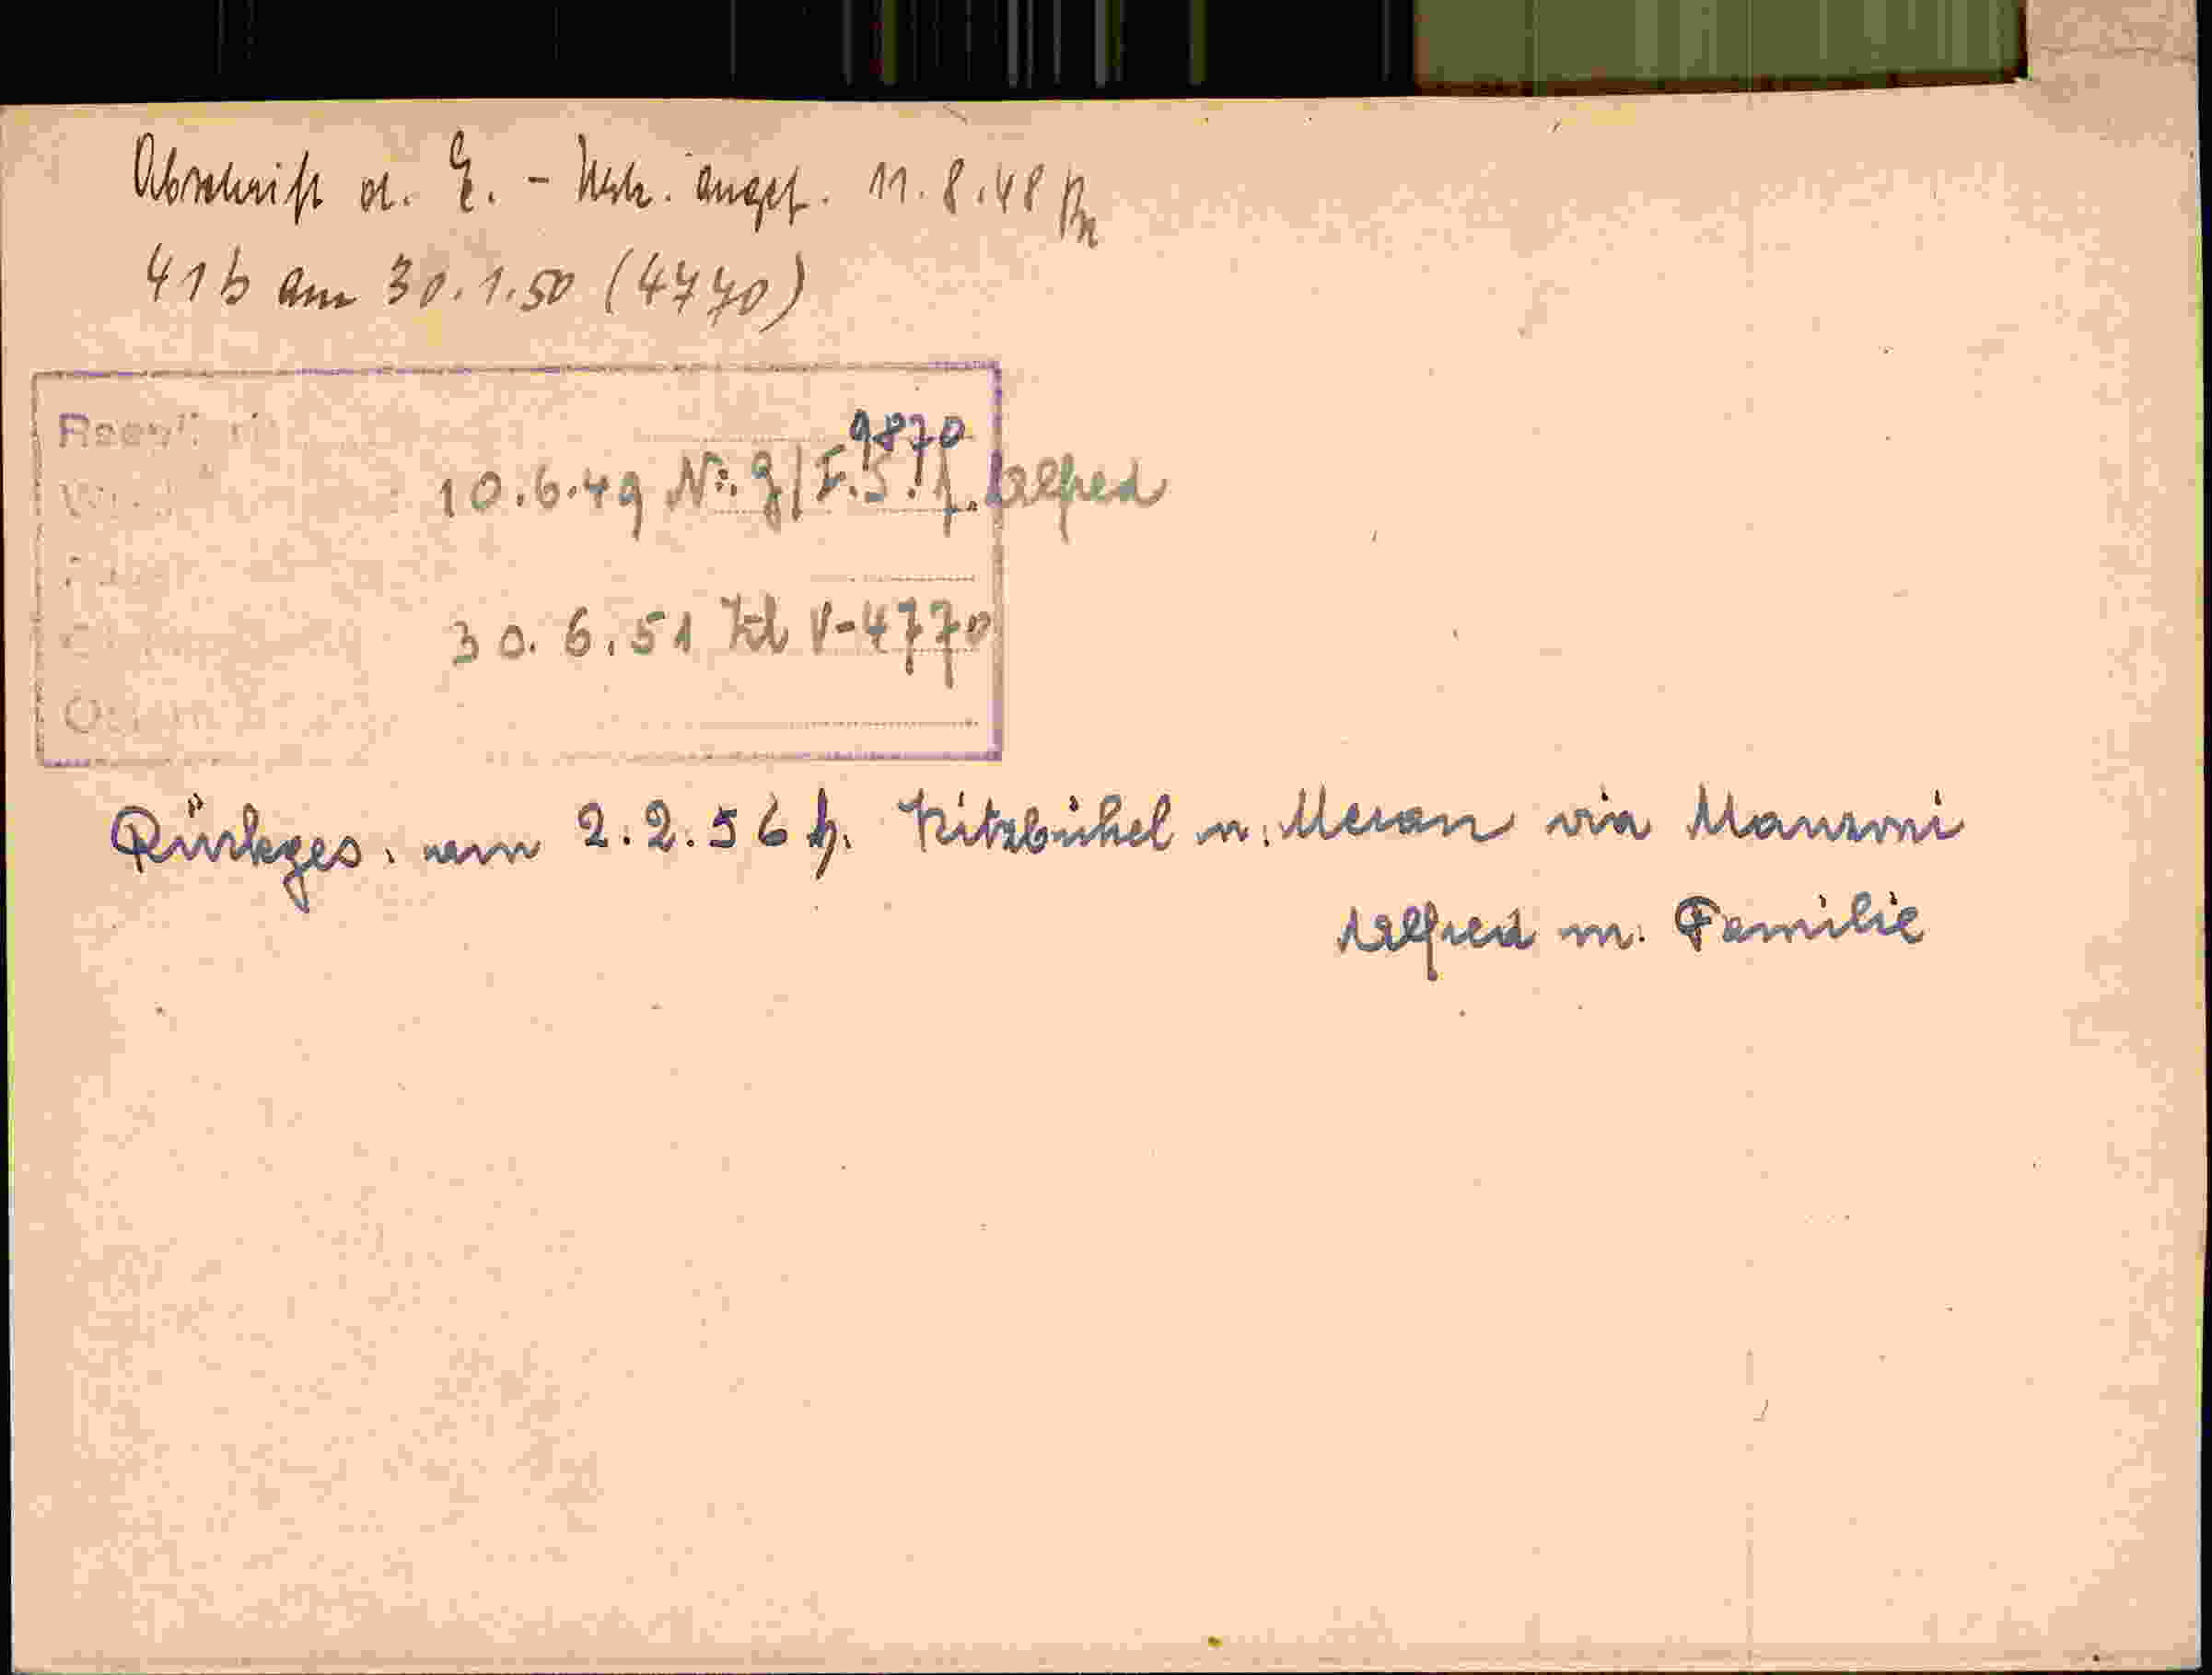 Abschrift d. E. - Urk. angef. 11.8.48
41b am 30.1.50 (4770)
9870
10.6.49 Nr. g/F.S.f. Alfred
30.6.51 Kl V-4770
Rückges. am 2.2.56 h. Kitzbühel n. Meran via Manzoni
Alfred m. Familie